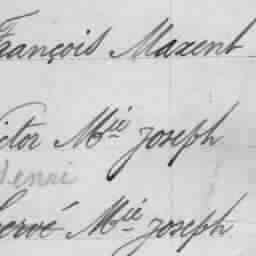 François Maxent
ictor Mie Joseph
Henri
Hervé Mie Joseph